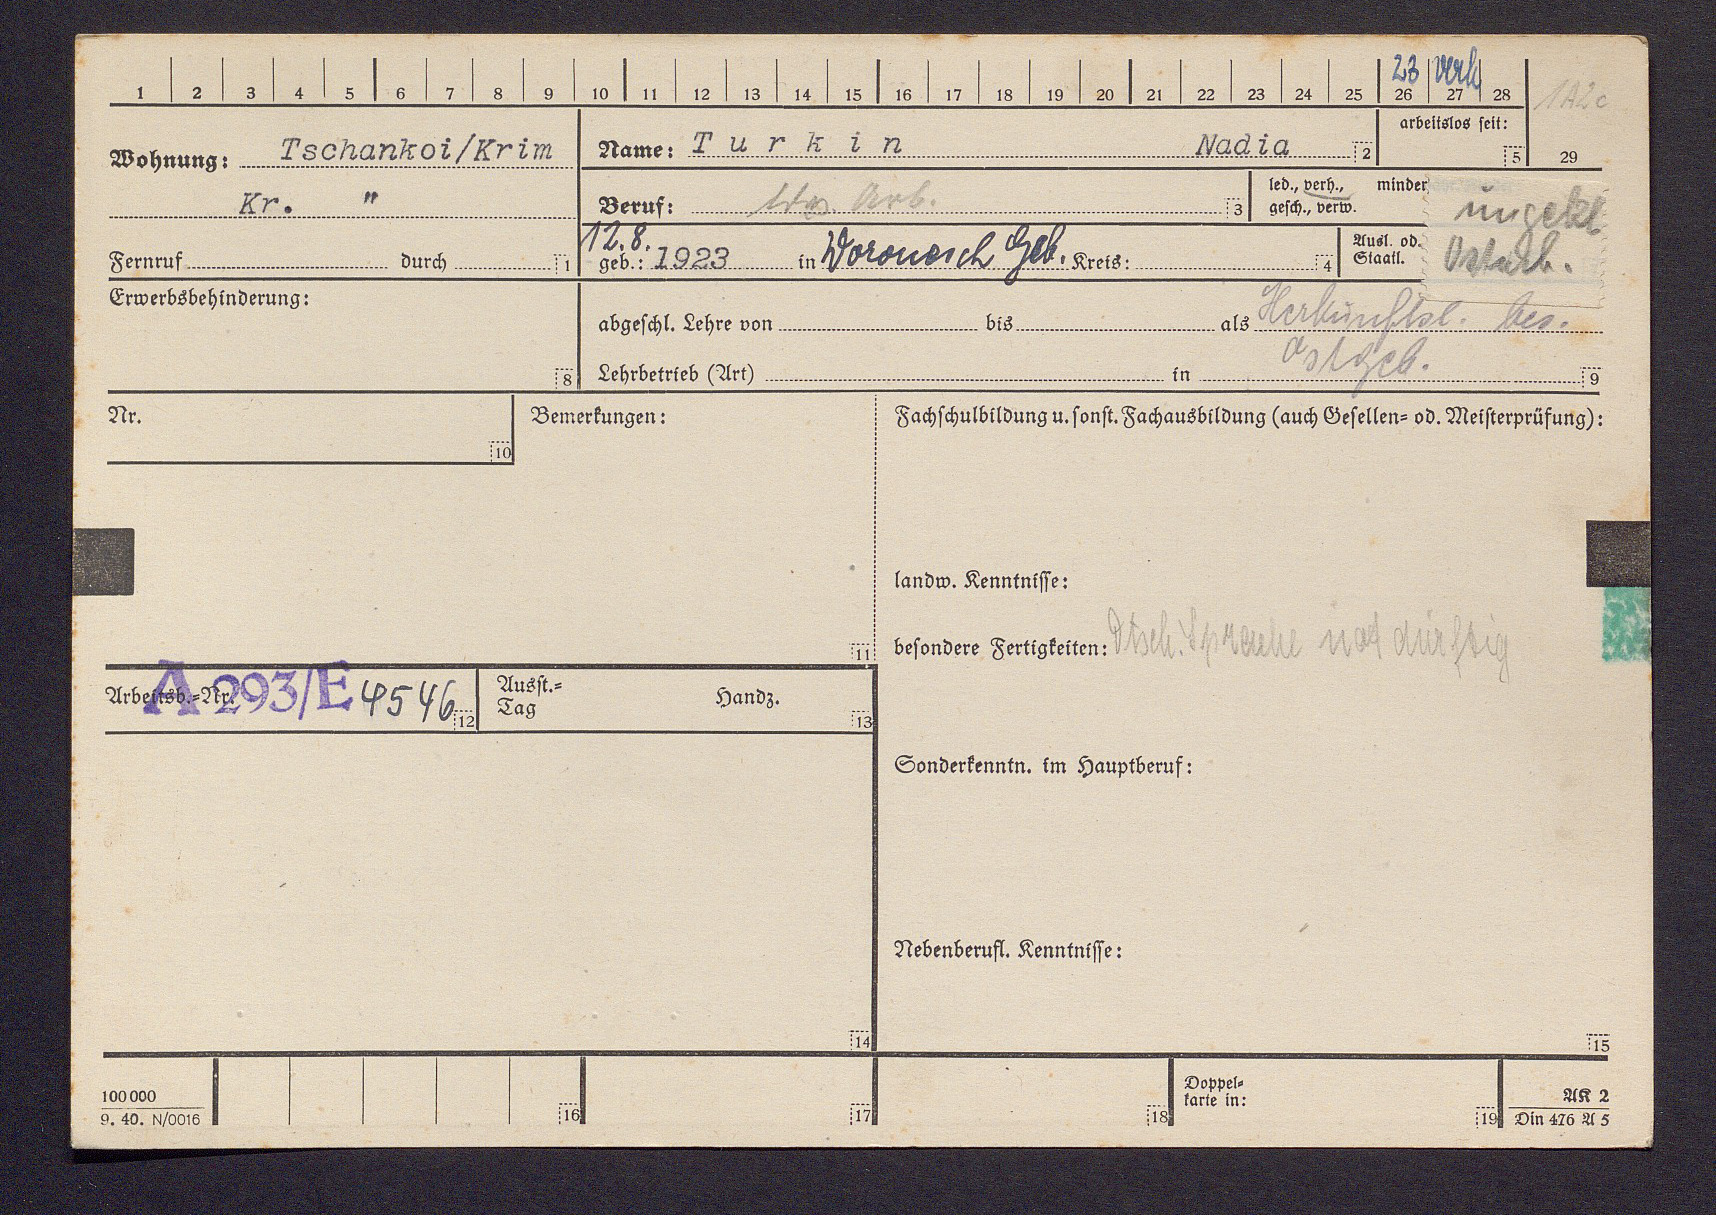 23 verh
1 2 3 4 5 6 7 8 9 10 11 12 13 14 15 16 17 18 19 20 21 22 23 24 25 26 27 28
1A2c
arbeitslos seit:
5
29
Wohnung: Tschankoi/Krim
Kr. "
Fernruf durch 1
Name: Turkin Nadia 2
Beruf: Arb. 3
led., verh., minder
gesch., verw.
ungekl.
12.8.
geb.: 1923 in Woronesch Geb. Kreis: 4
Ausl. od.
Staatl.
Ostarb.
Erwerbsbehinderung:
8
abgeschl. Lehre von bis als Herkunftsl. bes.
Ostgeb.
Lehrbetrieb (Art) in 9
Nr.
10
Bemerkungen:
11
Fachschulbildung u. sonst. Fachausbildung (auch Gesellen= od. Meisterprüfung):
landw. Kenntnisse:
besondere Fertigkeiten: Dtsch. Sprache notdürftig
Arbeitsb.=Nr. A 293/E 4546 12
Ausst.=
Tag
Handz.
13
Sonderkenntn. im Hauptberuf:
Nebenberufl. Kenntnisse:
14
15
100 000
9. 40. N/0016
16
17
18
Doppel=
karte in:
19
AK 2
Din 476 A 5